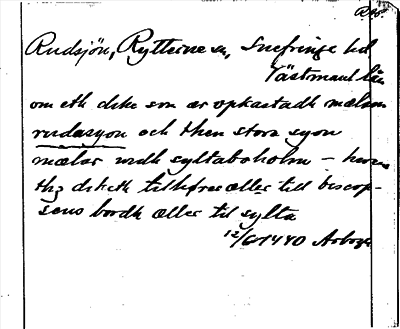 Rudsjön, Rytterne sn, Snefringe hd
Västmanl. län
om eth dike som ær opkastadh mælom
rudasyon och then stora syon
mælar widh syltaboholm – hwem
thz diketh tilhører æller till biscop-
sens bordh æller til sylta
12/6 1440 Arboga